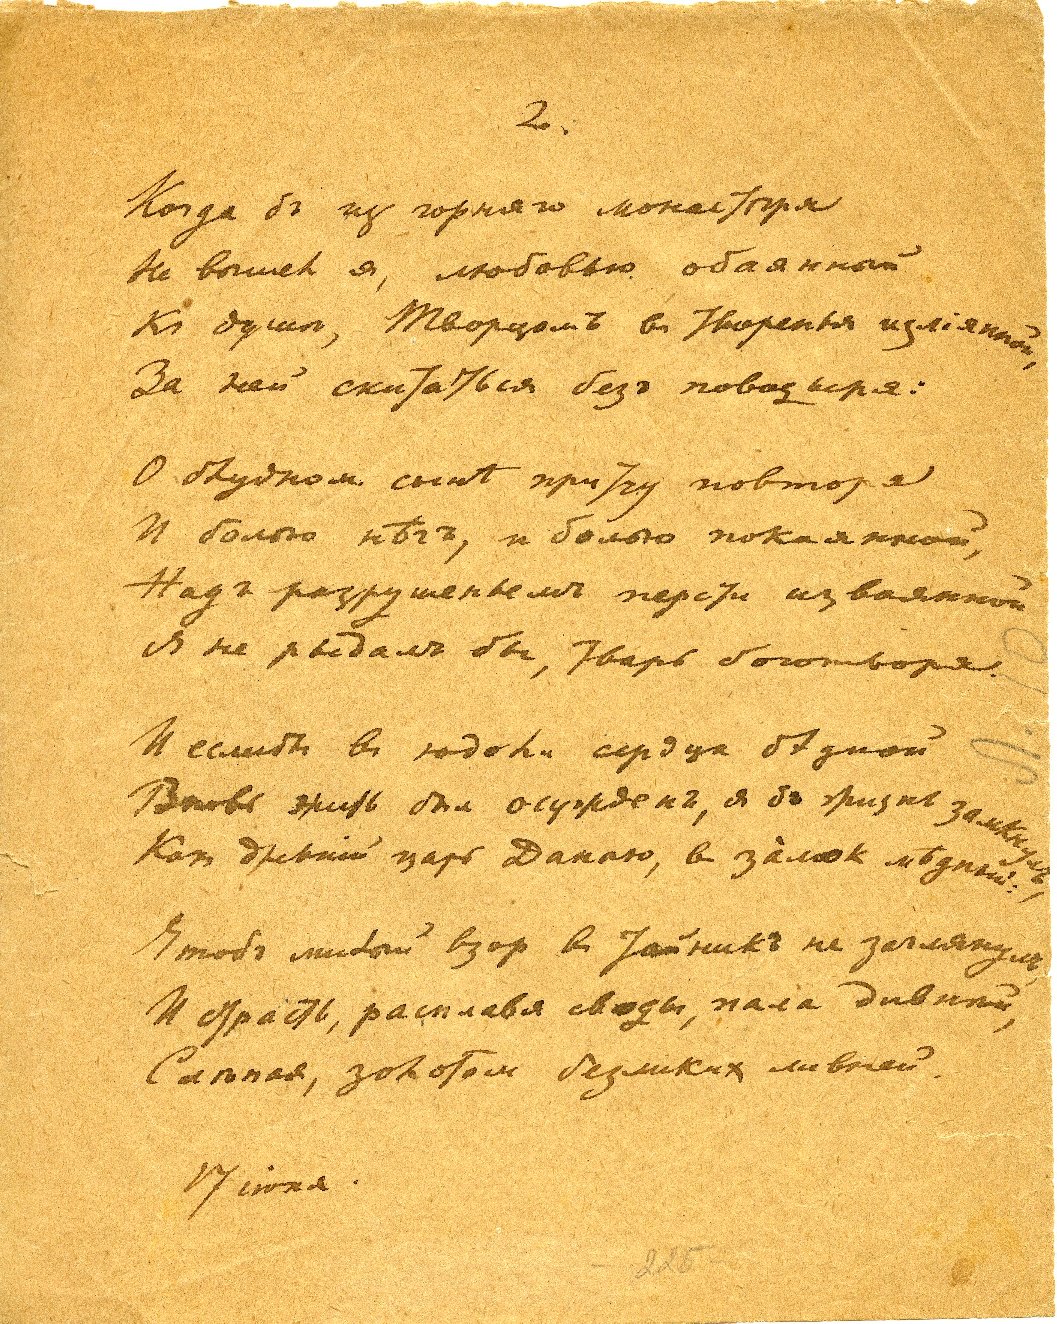 2.
Когда бъ из горняго монастыря
Не вышел я, любовью обаянный
Къ душѣ, Творцомъ въ творенья изліянной,
За ней скитаться безъ поводыря:
О блудном сынѣ притчу повторя
И болью нѣгъ, и болью покаянной,
Надъ разрушеньемъ персти изваянной
Я не рыдалъ бы, тварь боготворя.
И еслибъ въ юдоли сердца бѣдной
Вновь жить был осужденъ, я бъ жизнь замкнулъ,
Как древній царь Данаю, в замок мѣдный:
Чтобъ милый взор в тайникъ не заглянулъ,
И страсть, расплавя своды, пала дивный,
Слѣпая, золотом безликих ливней.
17 іюня.
- 225 -